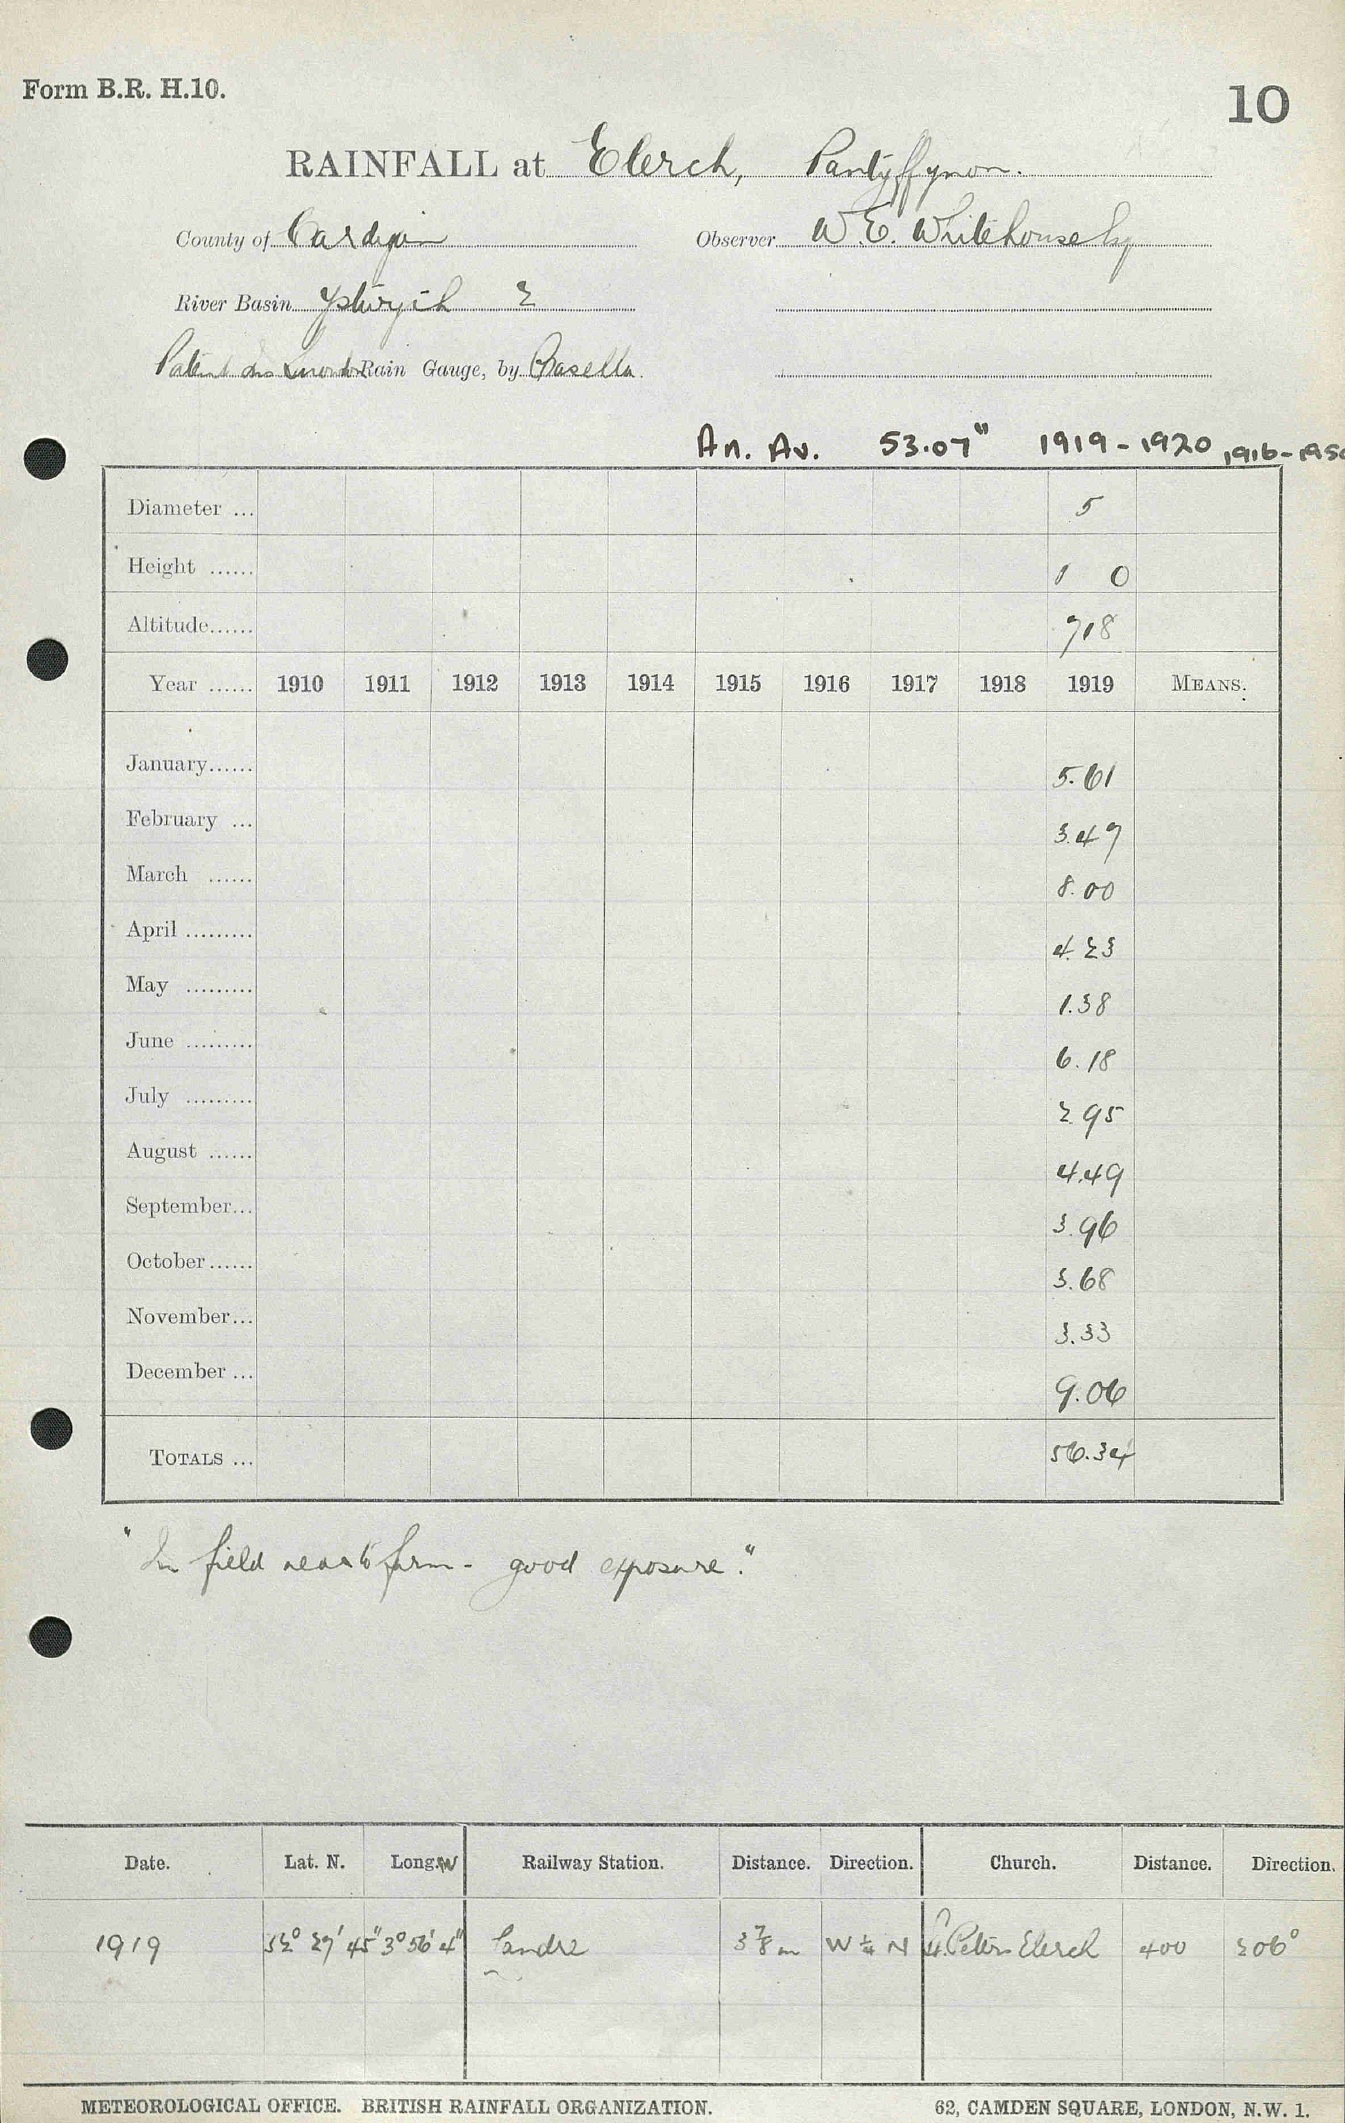 Form B.R. H.10.
10
RAINFALL at Elerch, Pantyffynon.
County of Cardigan Observer W. E. Whitehouse Esq
River Basin Ystwyth 2
Patent Rain Gauge, by Casella
An. Av. 53.07" 1919-1920 1916-1950
Diameter ... 5
Height ...... 1 0
Altitude...... 718
Year ...... 1910 1911 1912 1913 1914 1915 1916 1917 1918 1919 MEANS.
January...... 5.61
February ... 3.47
March ...... 8.00
April ......... 4.23
May ......... 1.38
June ......... 6.18
July ......... 2.95
August ...... 4.49
September... 3.96
October...... 3.68
November... 3.33
December ... 9.06
TOTALS ... 56.34
"In field near to farm - good exposure."
Date. Lat. N. Long. W Railway Station. Distance. Direction. Church. Distance. Direction.
1919 52° 27' 45" 3° 56' 4" Llandre 3 7/8 m W ¼ N St. Peters Elerch 400 206°
METEOROLOGICAL OFFICE. BRITISH RAINFALL ORGANIZATION. 62, CAMDEN SQUARE, LONDON, N.W. 1.